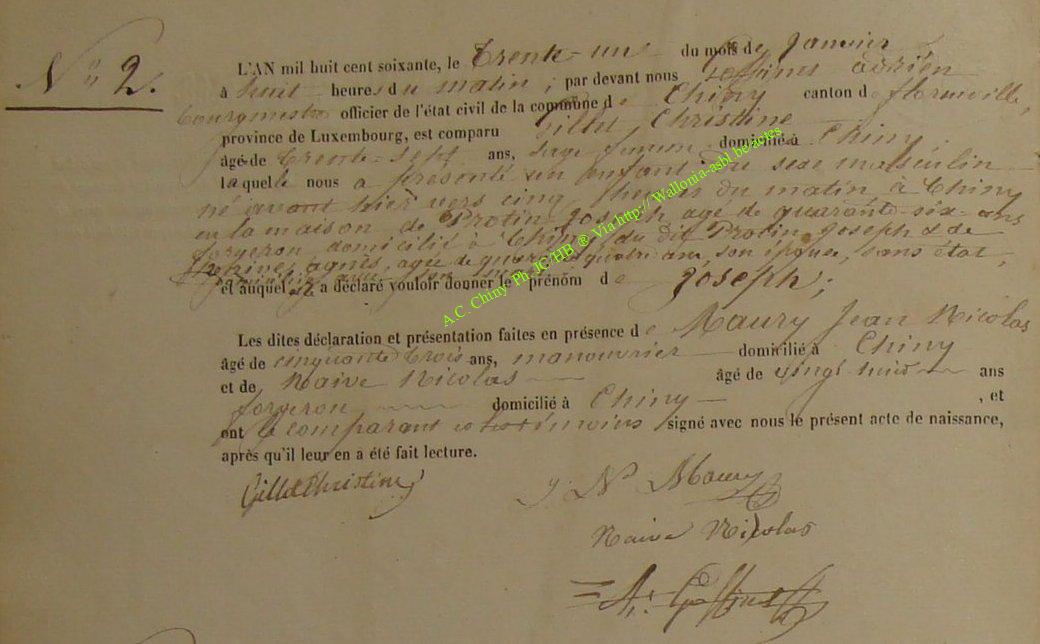 N° 2.
L'AN mil huit cent soixante, le trente-une du mois de Janvier
à huit heures du matin ; par devant nous adrien
bourgmestre officier de l'état civil de la commune de Chiny canton de florenville,
province de Luxembourg, est comparu Gillet Christine
âgée de trente-sept ans, sage femme domiciliée à Chiny
laquelle nous a présenté un enfant du sexe masculin
né avant hier vers cinq heures du matin à Chiny
en la maison de Protin Joseph agé de quarante-six ans
forgeron domicilié à Chiny, du dit Protin Joseph & de
agnès, agée de quarante quatre ans, son épouse, sans état,
et auquel elle a déclaré vouloir donner le prénom de Joseph ;
Les dites déclaration et présentation faites en présence de Maury Jean Nicolas
âgé de cinquante trois ans, manouvrier domicilié à Chiny
et de Naive Nicolas âgé de vingt huit ans
forgeron domicilié à Chiny , et
ont le comparant et les témoins signé avec nous le présent acte de naissance,
après qu'il leur en a été fait lecture.
Gillet Christine
J. N. Maury
Naive Nicolas
A.C. Chiny Ph. JC/HB ® Via http://Wallonia-asbl.be/actes